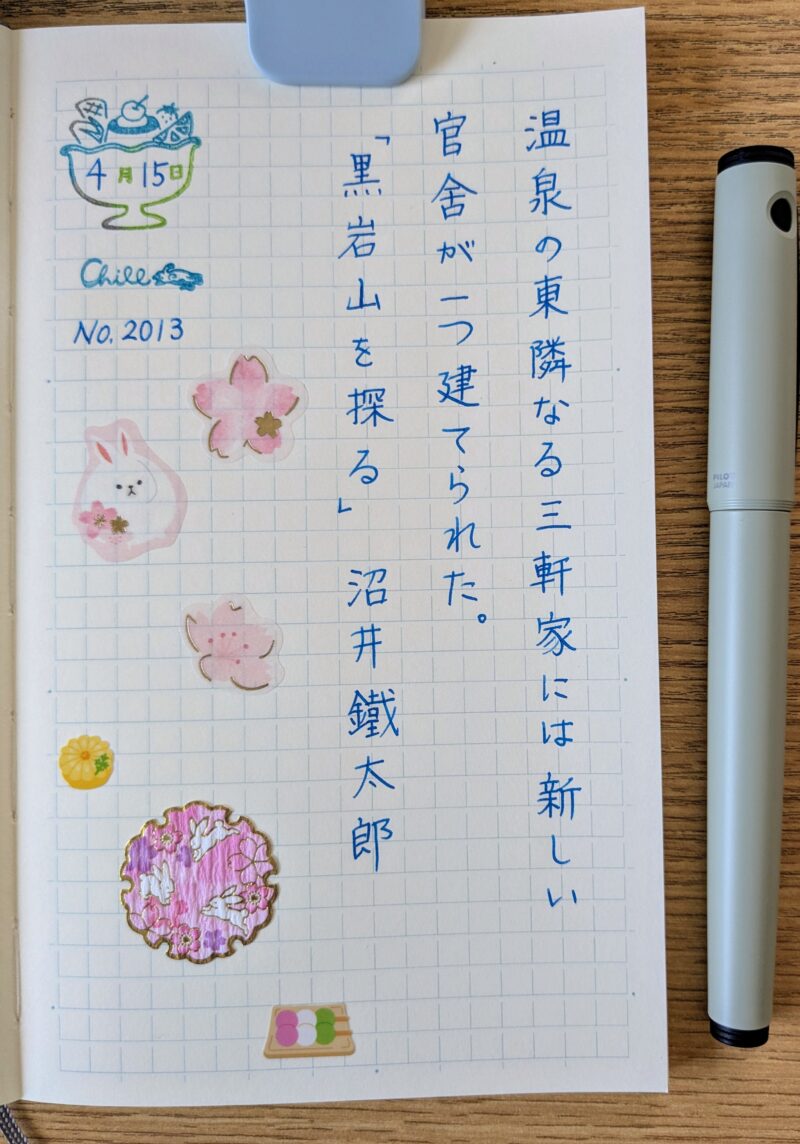 温泉の東隣なる三軒家には新しい
官舎が一つ建てられた。
「黒岩山を探る」 沼井鐵太郎
4月15日
Chill
No.2013
PILOT
JAPAN